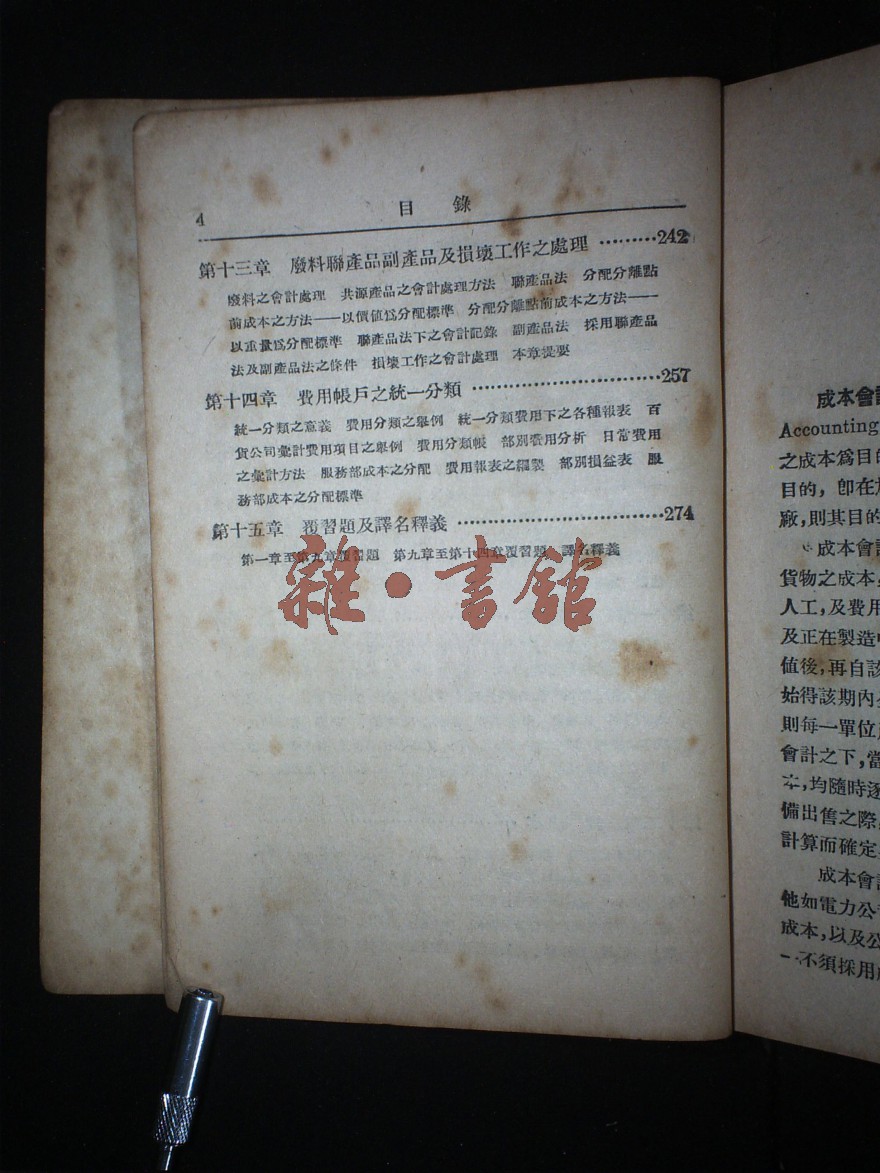 4 目錄
第十三章 廢料聯產品副產品及損壞工作之處理 ………242
廢料之會計處理 共源產品之會計處理方法 聯產品法 分配分離點
前成本之方法——以價值爲分配標準 分配分離點前成本之方法——
以重量爲分配標準 聯產品法下之會計記錄 副產品法 採用聯產品
法及副產品法之條件 損壞工作之會計處理 本章提要
第十四章 費用帳戶之統一分類 ……………………………257
統一分類之意義 費用分類之舉例 統一分類費用下之各種報表 百
貨公司彙計費用項目之舉例 費用分類帳 部別費用分析 日常費用
之彙計方法 服務部成本之分配 費用報表之編製 部別損益表 服
務部成本之分配標準
第十五章 覆習題及譯名釋義 ………………………………274
第一章至第九章覆習題 第九章至第十四章覆習題 譯名釋義
雜·書館
成本會計
Accounting
之成本爲目的
目的，卽在
廠，則其目的
成本會計
貨物之成本
人工，及費用
及正在製造中
值後，再自該
始得該期內
則每一單位
會計之下，當
本，均隨時逐
備出售之際，
計算而確定
成本會計
他如電力公司
成本，以及公
一不須採用